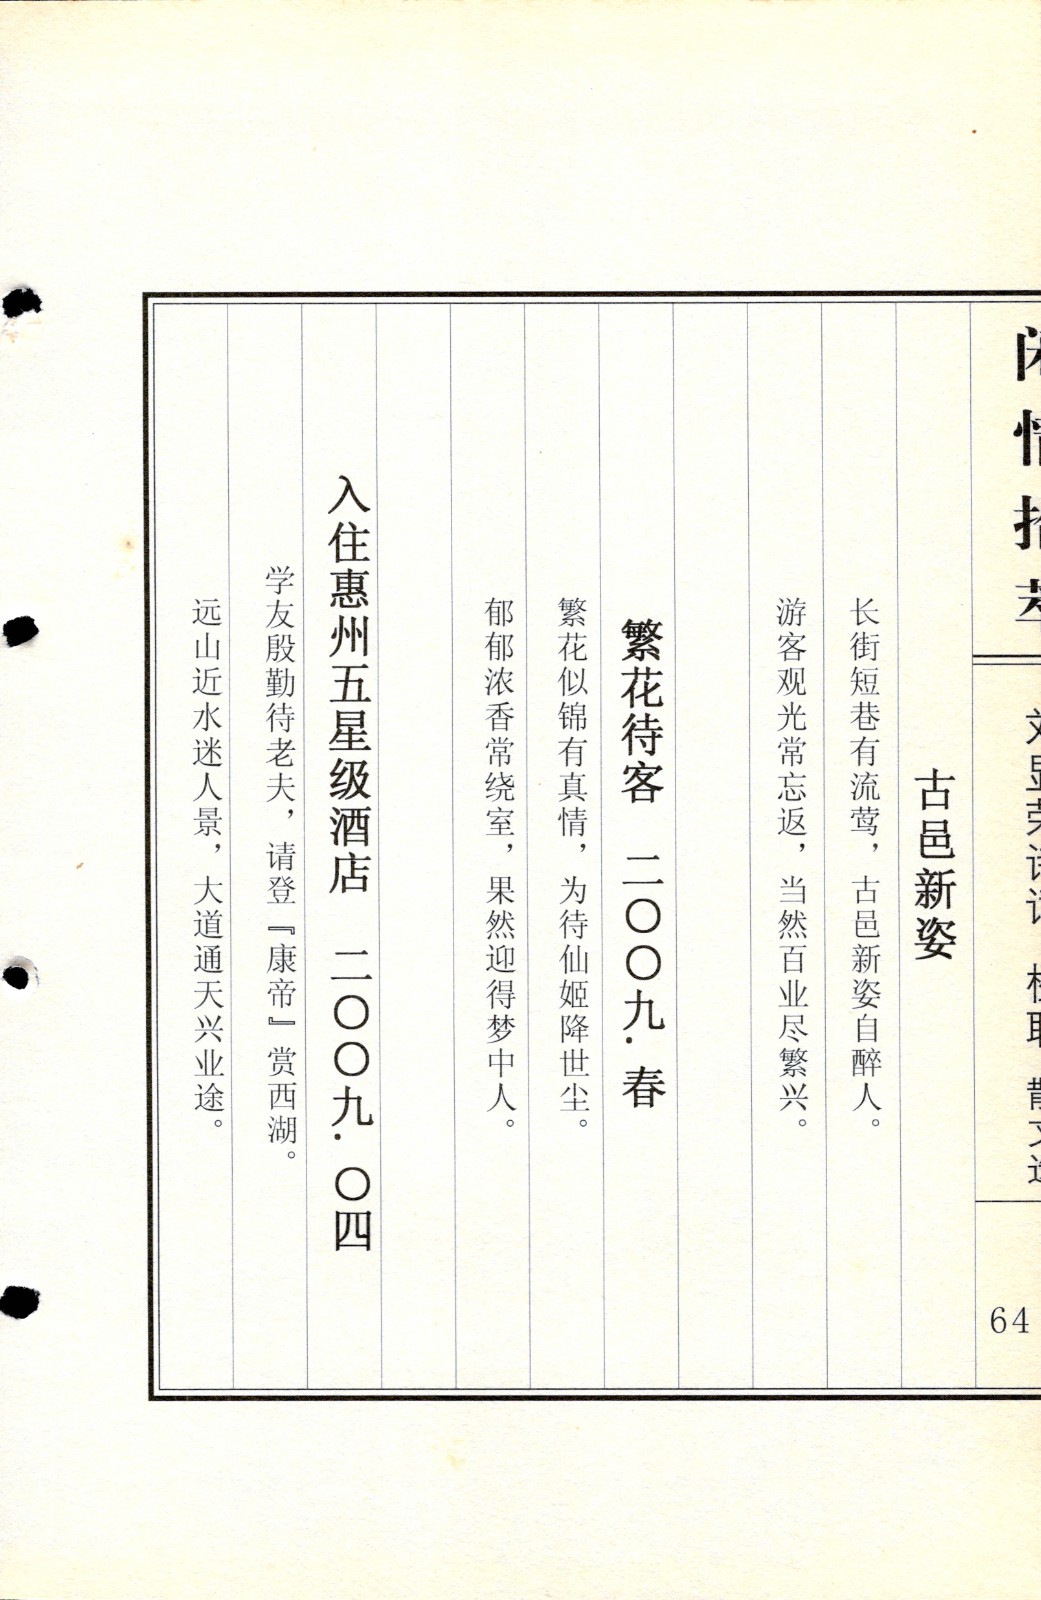 闲情拾萃
刘显荣诗词 楹联 散文选
64
古邑新姿
长街短巷有流莺，古邑新姿自醉人。
游客观光常忘返，当然百业尽繁兴。
繁花待客 二〇〇九.春
繁花似锦有真情，为待仙姬降世尘。
郁郁浓香常绕室，果然迎得梦中人。
入住惠州五星级酒店 二〇〇九.〇四
学友殷勤待老夫，请登『康帝』赏西湖。
远山近水迷人景，大道通天兴业途。